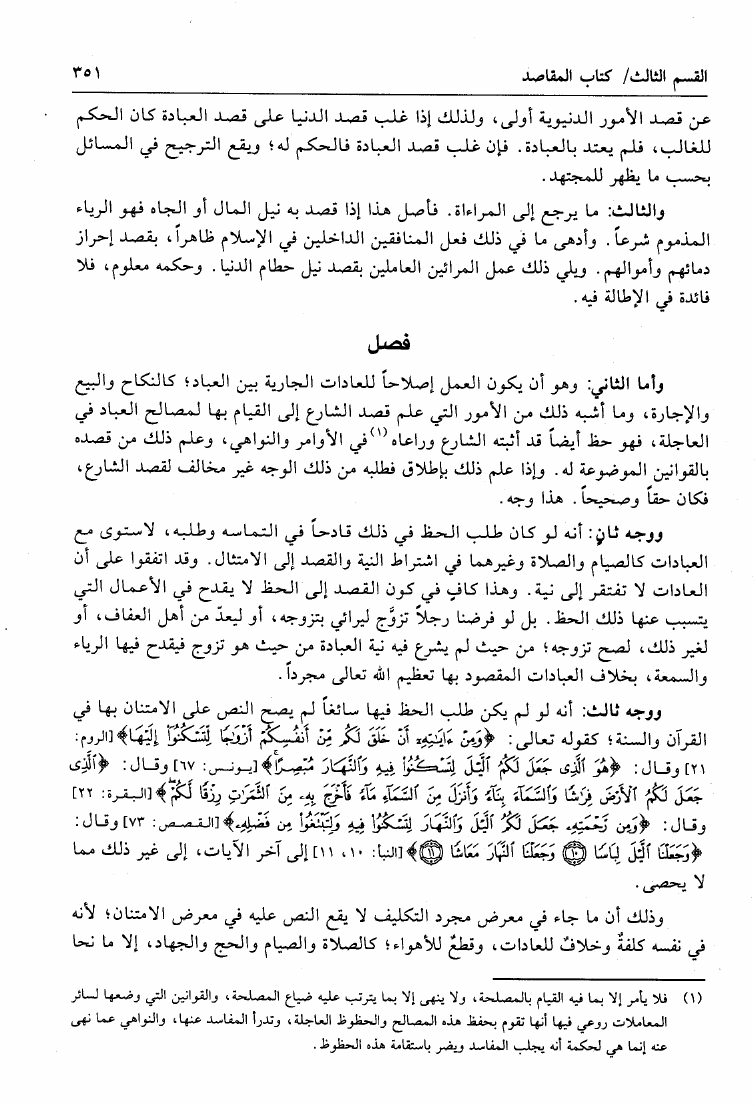 القسم الثالث/ كتاب المقاصد ٣٥١
عن قصد الأمور الدنيوية أولى، ولذلك إذا غلب قصد الدنيا على قصد العبادة كان الحكم
للغالب، فلم يعتد بالعبادة. فإن غلب قصد العبادة فالحكم له؛ ويقع الترجيح في المسائل
بحسب ما يظهر للمجتهد.
والثالث: ما يرجع إلى المراءاة. فأصل هذا إذا قصد به نيل المال أو الجاه فهو الرياء
المذموم شرعاً. وأدهى ما في ذلك فعل المنافقين الداخلين في الإسلام ظاهراً، بقصد إحراز
دمائهم وأموالهم. ويلي ذلك عمل المرائين العاملين بقصد نيل حطام الدنيا. وحكمه معلوم، فلا
فائدة في الإطالة فيه.
فصل
وأما الثاني: وهو أن يكون العمل إصلاحاً للعادات الجارية بين العباد؛ كالنكاح والبيع
والإجارة، وما أشبه ذلك من الأمور التي علم قصد الشارع إلى القيام بها لمصالح العباد في
العاجلة، فهو حظ أيضاً قد أثبته الشارع وراعاه(١) في الأوامر والنواهي، وعلم ذلك من قصده
بالقوانين الموضوعة له. وإذا علم ذلك بإطلاق فطلبه من ذلك الوجه غير مخالف لقصد الشارع،
فكان حقاً وصحيحاً. هذا وجه.
ووجه ثانٍ: أنه لو كان طلب الحظ في ذلك قادحاً في التماسه وطلبه، لاستوى مع
العبادات كالصيام والصلاة وغيرهما في اشتراط النية والقصد إلى الامتثال. وقد اتفقوا على أن
العادات لا تفتقر إلى نية. وهذا كافٍ في كون القصد إلى الحظ لا يقدح في الأعمال التي
يتسبب عنها ذلك الحظ. بل لو فرضنا رجلاً تزوَّج ليرائي بتزوجه، أو ليعدّ من أهل العفاف، أو
لغير ذلك، لصح تزوجه؛ من حيث لم يشرع فيه نية العبادة من حيث هو تزوج فيقدح فيها الرياء
والسمعة، بخلاف العبادات المقصود بها تعظيم الله تعالى مجرداً.
ووجه ثالث: أنه لو لم يكن طلب الحظ فيها سائغاً لم يصح النص على الامتنان بها في
القرآن والسنة؛ كقوله تعالى: ﴿وَمِنْ ءَايَٰتِهِۦٓ أَنْ خَلَقَ لَكُم مِّنْ أَنفُسِكُمْ أَزْوَٰجًا لِّتَسْكُنُوٓاْ إِلَيْهَا﴾ [الروم:
٢١] وقال: ﴿هُوَ ٱلَّذِى جَعَلَ لَكُمُ ٱلَّيْلَ لِتَسْكُنُواْ فِيهِ وَٱلنَّهَارَ مُبْصِرًا﴾ [يونس: ٦٧] وقال: ﴿ٱلَّذِى
جَعَلَ لَكُمُ ٱلْأَرْضَ فِرَٰشًا وَٱلسَّمَآءَ بِنَآءً وَأَنزَلَ مِنَ ٱلسَّمَآءِ مَآءً فَأَخْرَجَ بِهِۦ مِنَ ٱلثَّمَرَٰتِ رِزْقًا لَّكُمْ﴾ [البقرة: ٢٢]
وقال: ﴿وَمِن رَّحْمَتِهِۦ جَعَلَ لَكُمُ ٱلَّيْلَ وَٱلنَّهَارَ لِتَسْكُنُواْ فِيهِ وَلِتَبْتَغُواْ مِن فَضْلِهِۦ﴾ [القصص: ٧٣] وقال:
﴿وَجَعَلْنَا ٱلَّيْلَ لِبَاسًا ۝١٠ وَجَعَلْنَا ٱلنَّهَارَ مَعَاشًا ۝١١﴾ [النبأ: ١٠، ١١] إلى آخر الآيات، إلى غير ذلك مما
لا يحصى.
وذلك أن ما جاء في معرض مجرد التكليف لا يقع النص عليه في معرض الامتنان؛ لأنه
في نفسه كلفةٌ وخلافٌ للعادات، وقطعٌ للأهواء؛ كالصلاة والصيام والحج والجهاد، إلا ما نحا
(١) فلا يأمر إلا بما فيه القيام بالمصلحة، ولا ينهى إلا بما يترتب عليه ضياع المصلحة، والقوانين التي وضعها لسائر
المعاملات روعي فيها أنها تقوم بحفظ هذه المصالح والحظوظ العاجلة، وتدرأ المفاسد عنها، والنواهي عما نهى
عنه إنما هي لحكمة أنه يجلب المفاسد ويضر باستقامة هذه الحظوظ.